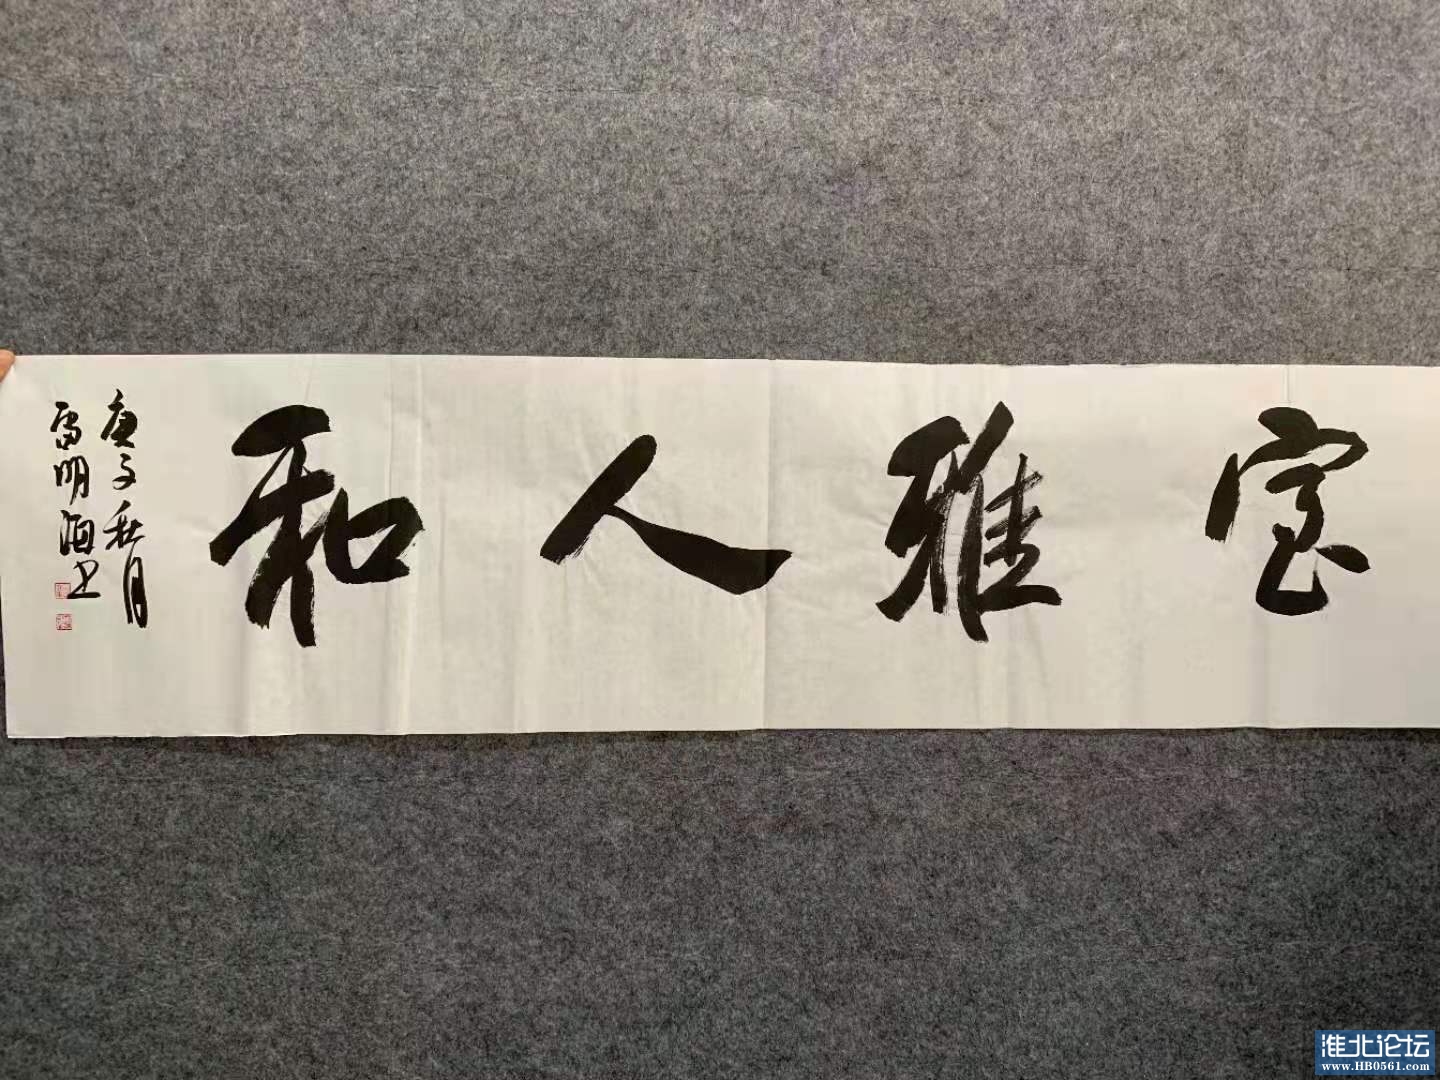 室雅人和
庚子秋月
雷明酒书
淮北论坛
www.HB0561.com